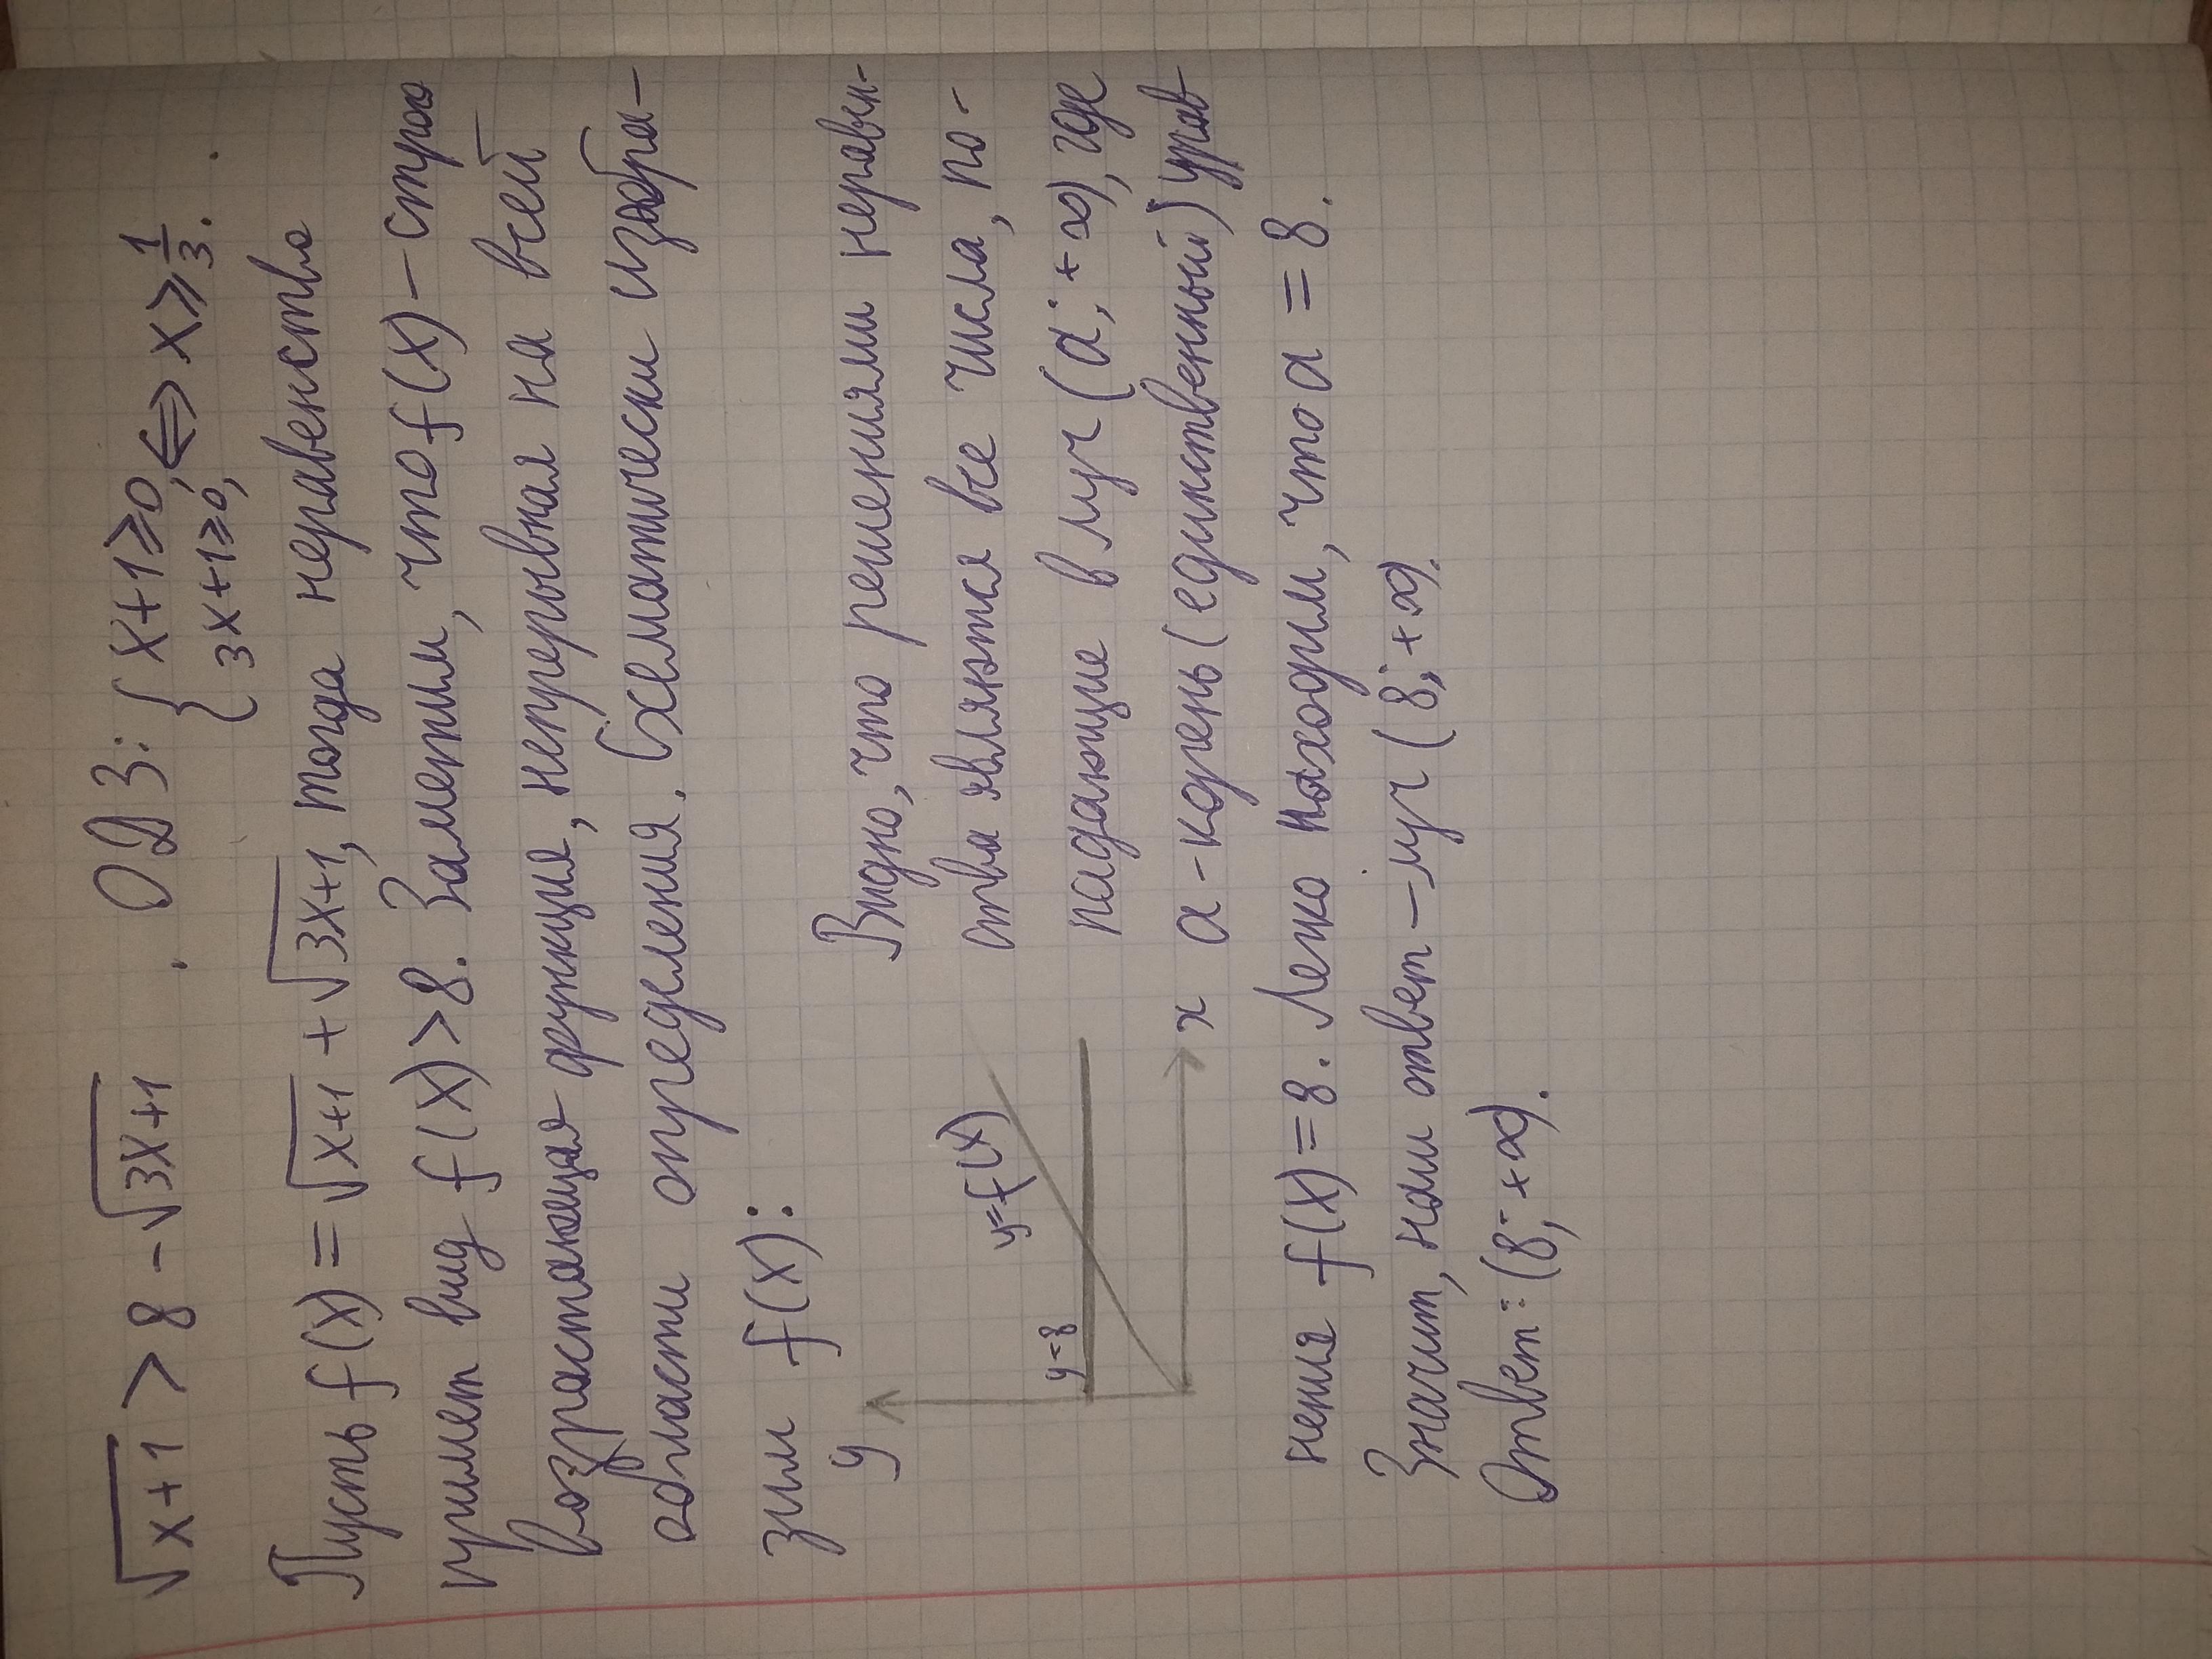 √x+1 > 8 - √3x+1. ОДЗ: { x+1≥0, 3x+1≥0, ⇔ x≥1/3.
Пусть f(x) = √x+1 + √3x+1, тогда неравенство
примет вид f(x)>8. Заметим, что f(x) - строго
возрастающая функция, непрерывная на всей
области определения. Схематически изобра-
зим f(x):
y
y=8
y=f(x)
x
Видно, что решениями неравен-
ства являются все числа, по-
падающие в луч (a; +∞), где
a - корень (единственный) урав
нения f(x)=8. Легко находим, что a = 8.
Значит, наш ответ - луч (8; +∞).
Ответ: (8; +∞).